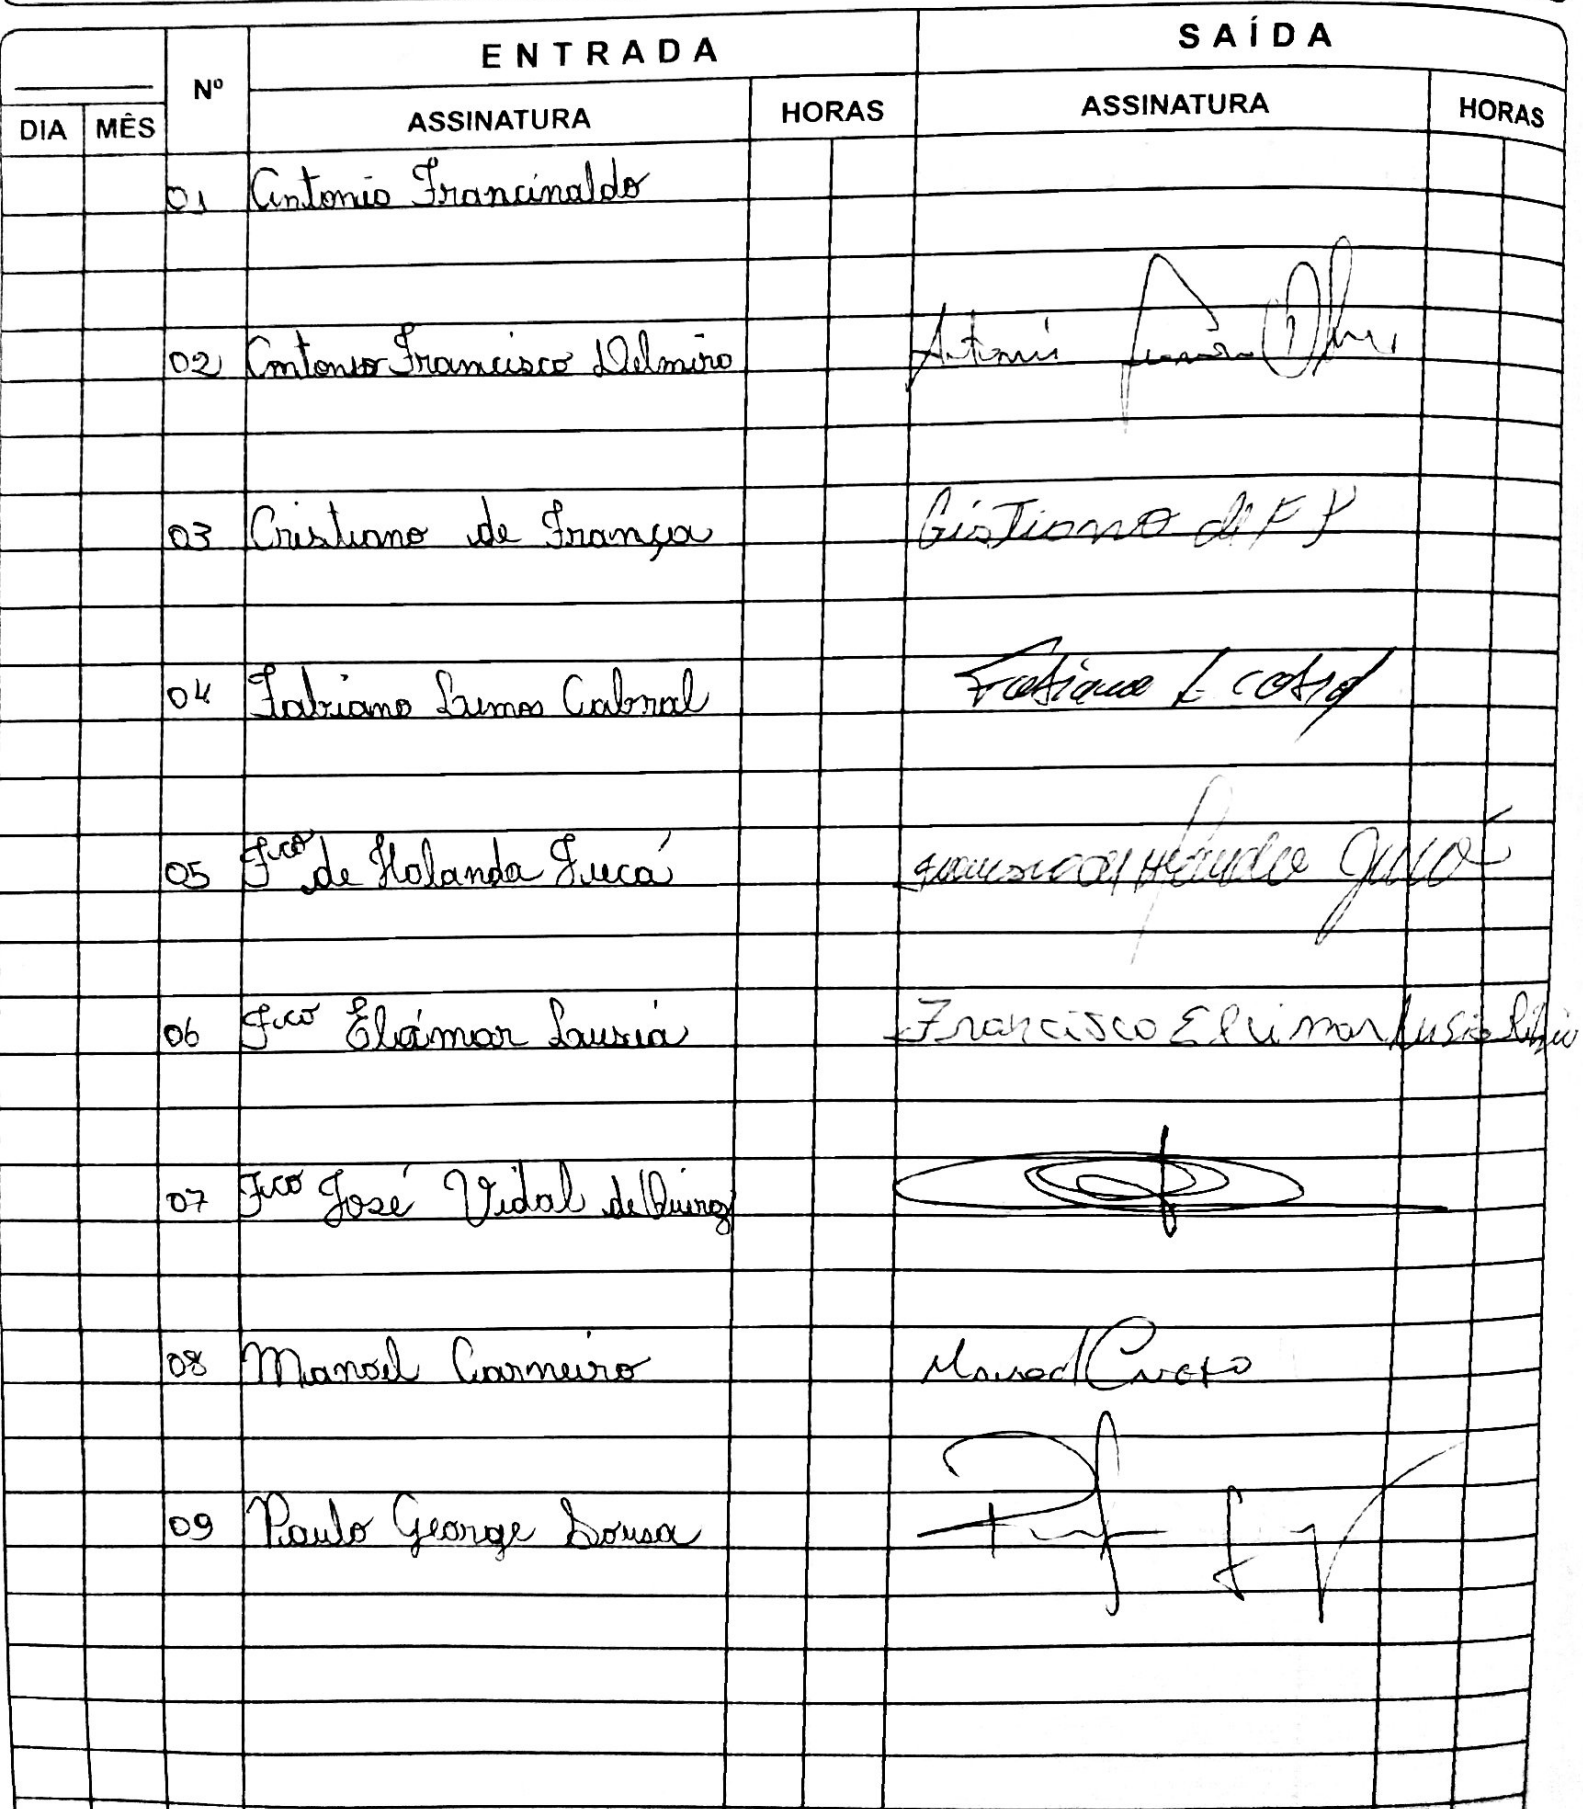 ENTRADA SAÍDA
Nº
DIA MÊS ASSINATURA HORAS ASSINATURA HORAS
01 Antonio Francinaldo
02 Antonio Francisco Delmiro Antonio
03 Cristiano de França Cristiano de F
04 Fabiano Lemos Cabral Fabiano L
05 Fco de Holanda Jucá Jucá
06 Fco Elimar Francisco Elimar
07 Fco José Vidal de Queiroz
08 Manoel Carneiro Manoel
09 Paulo George Sousa